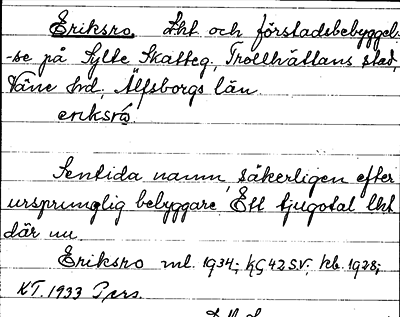 Eriksro. Lht och förstadsbebyggel-
-se på Sylte Skatteg, Trollhättans stad,
Väne hd, Älfsborgs län
eriksró
Sentida namn, säkerligen efter
ursprunglig bebyggare. Ett tjugotal lht
där nu.
Eriksro ml. 1934; kb. 1928;
KT. 1933 Pers.